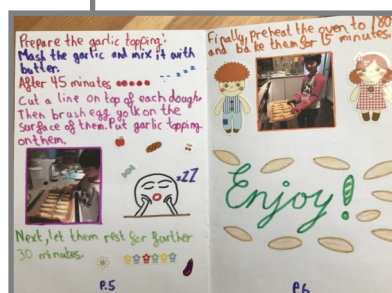 Prepare the garlic topping!
Mash the garlic and mix it with
butter.
After 45 minutes
Cut a line on top of each dough.
Then brush egg yolk on the
surface of them. Put garlic topping
on them.
zZZ
Next, let them rest for further
30 minutes.
P.5
Finally, Preheat the oven to 180
and bake them for 15 minutes.
Enjoy!
P.6